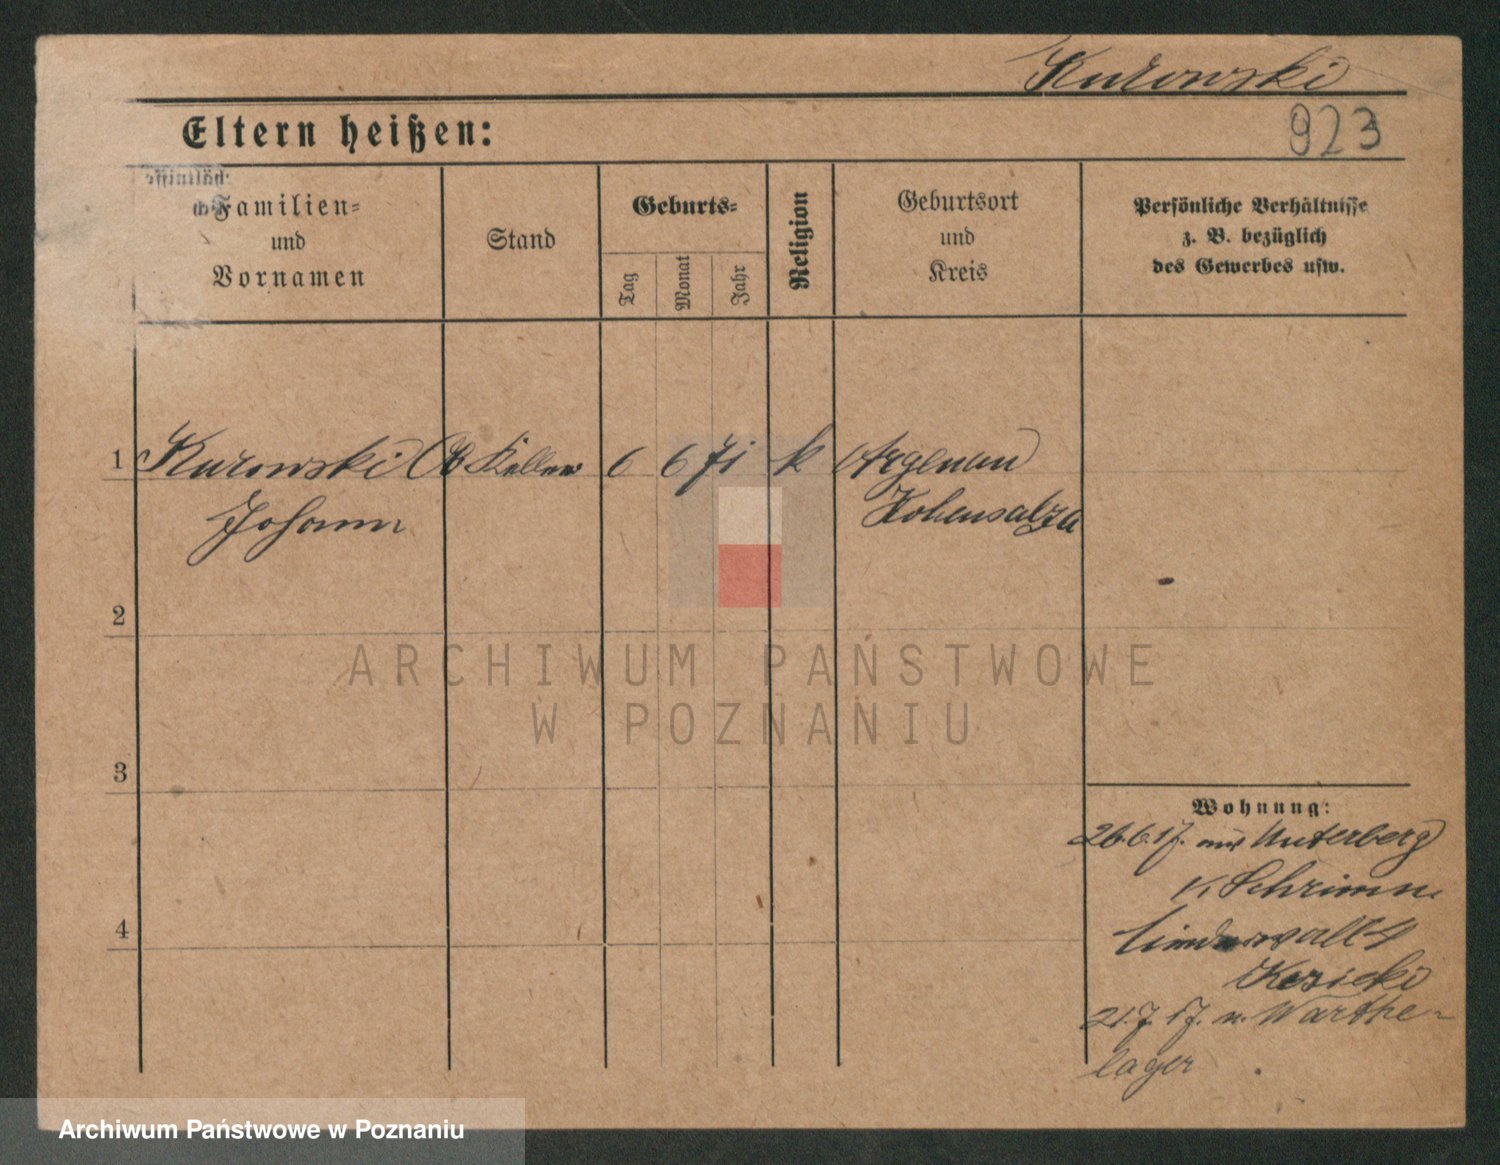 Kurowski
923
Eltern heißen:
Familien=
und
Vornamen
Stand
Geburts=
Tag
Monat
Jahr
Religion
Geburtsort
und
Kreis
Persönliche Verhältnisse
z. B. bezüglich
des Gewerbes usw.
1 Kurowski Ob Kellner 6 6 71 k Argenau
Johann Hohensalza
2
3
4
Wohnung:
26.6.17. aus Unterberg
K. Schrimm.
4
Kozicki
21.7.17. n. Warthe-
lager
ARCHIWUM PAŃSTWOWE
W POZNANIU
Archiwum Państwowe w Poznaniu